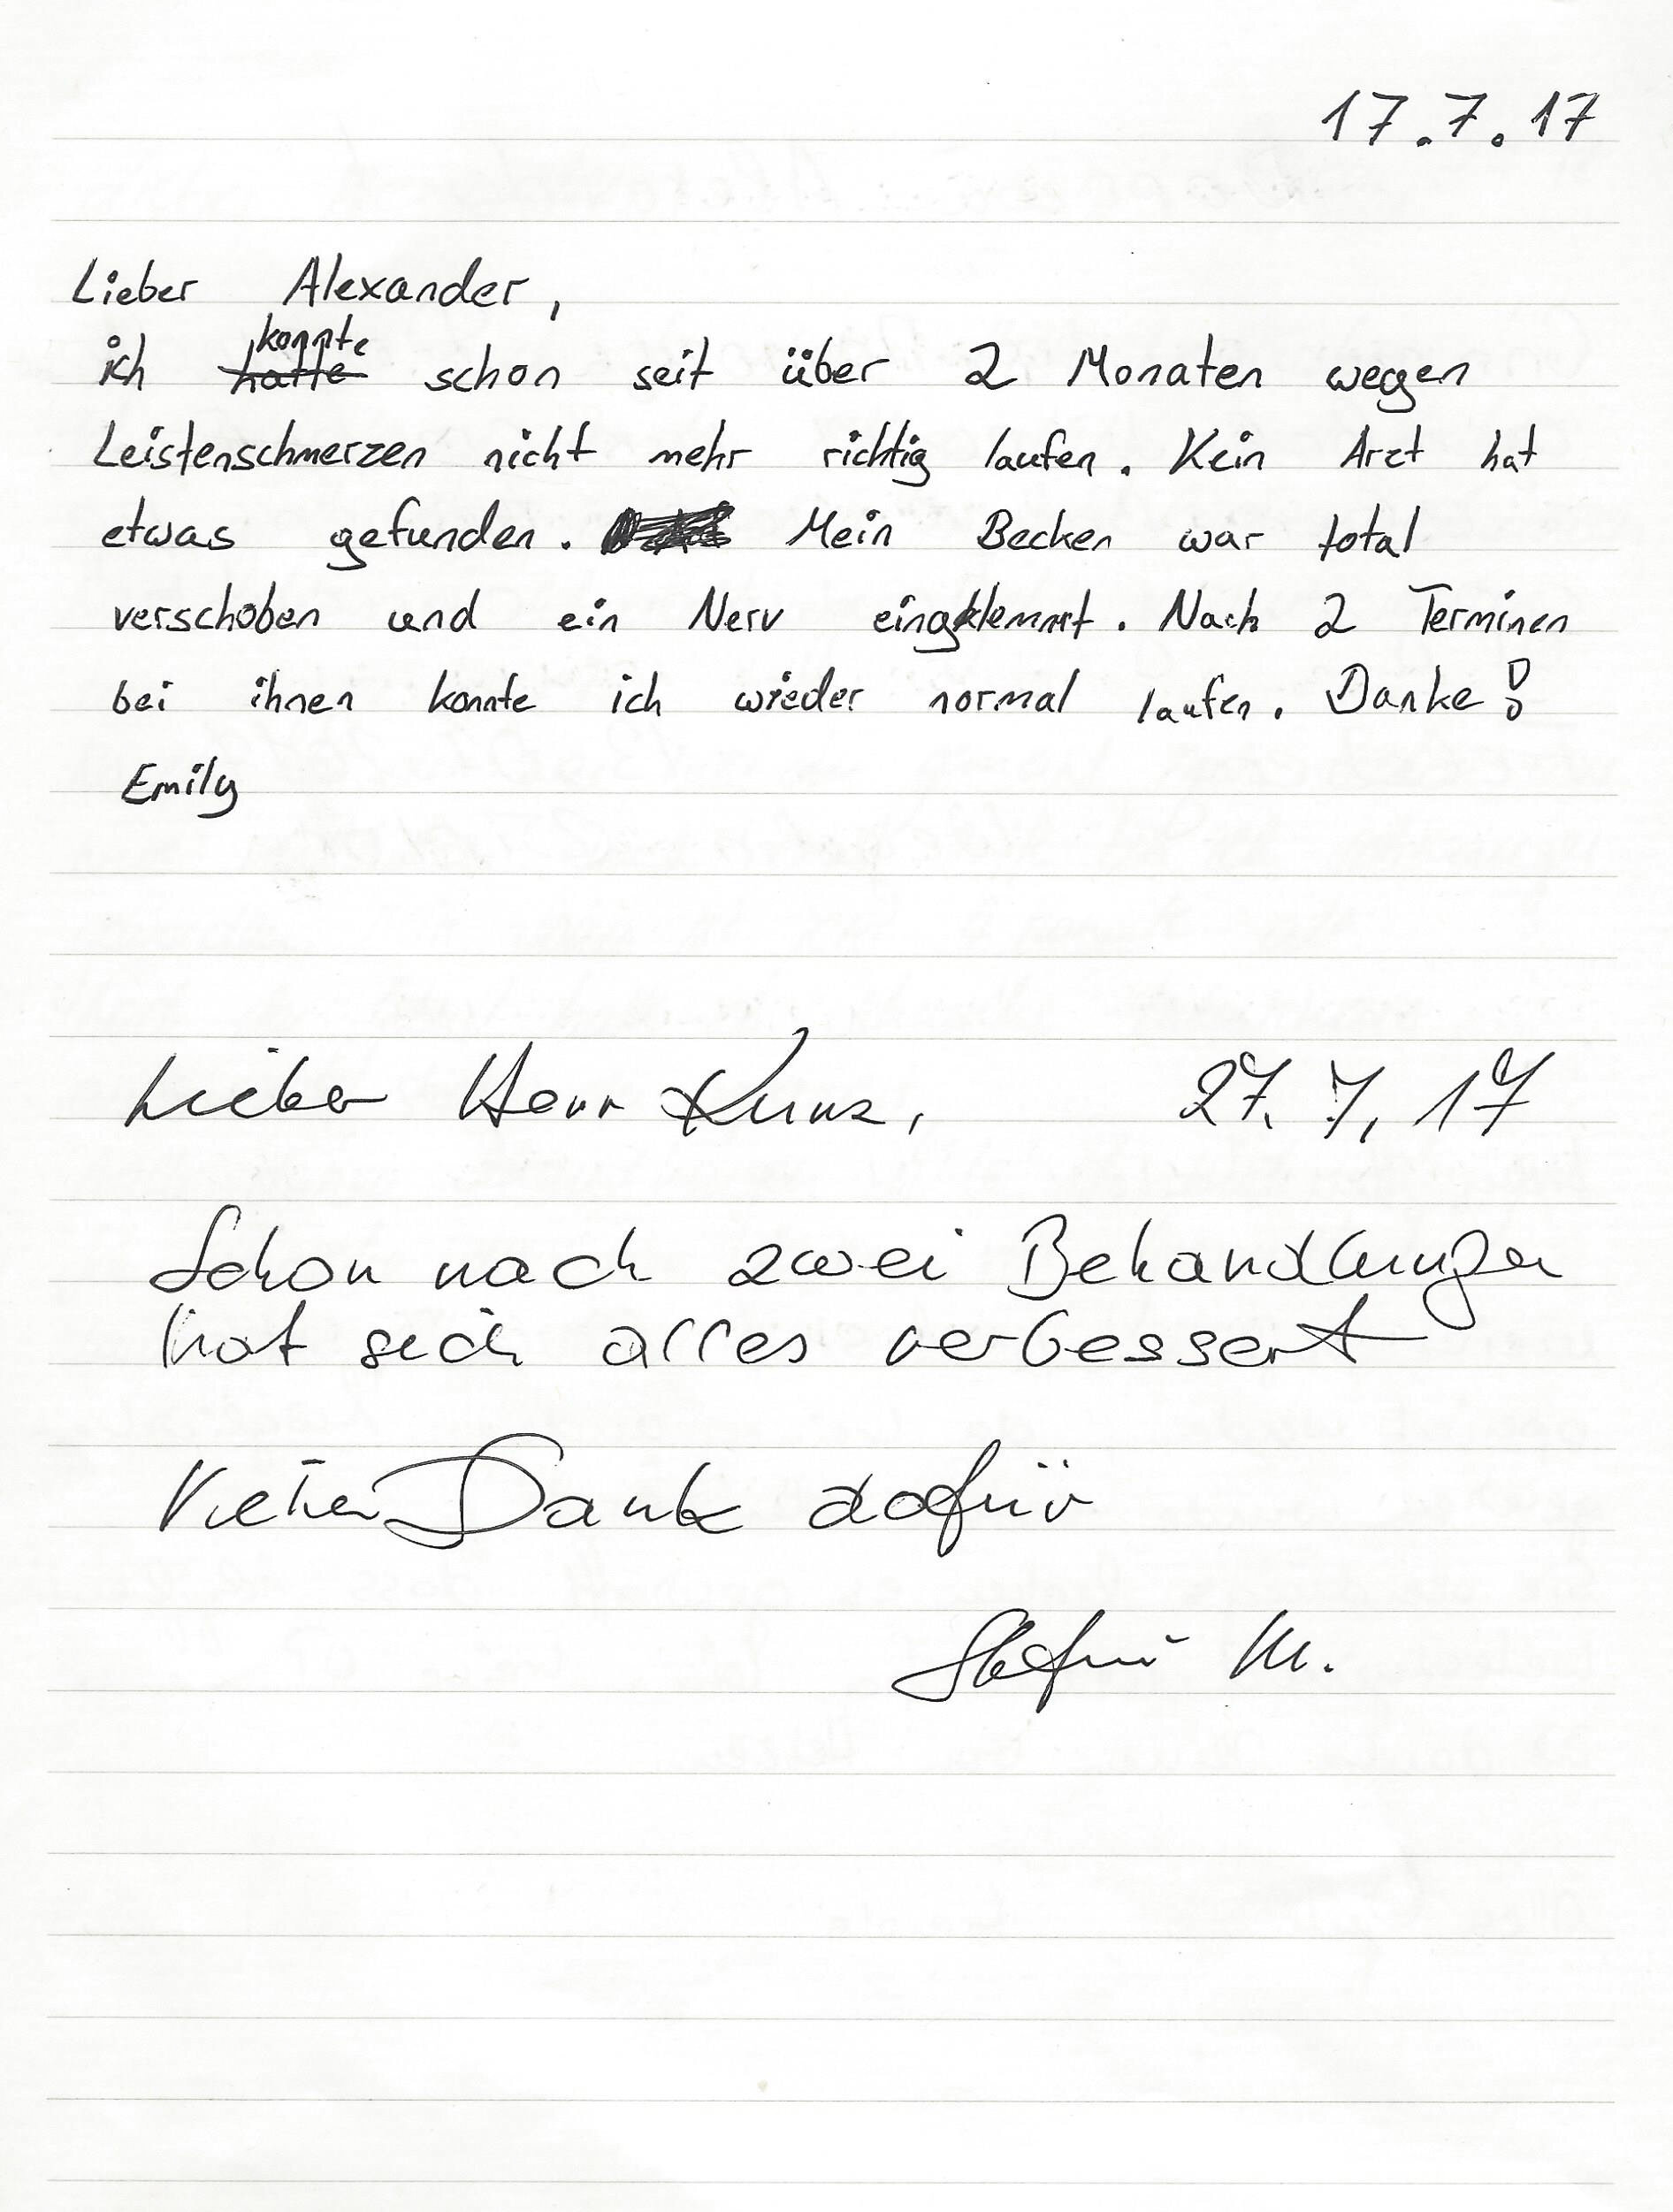 17.7.17
Lieber Alexander,
konnte
ich hatte schon seit über 2 Monaten wegen
Leistenschmerzen nicht mehr richtig laufen. Kein Arzt hat
etwas gefunden. Mein Becken war total
verschoben und ein Nerv eingeklemmt. Nach 2 Terminen
bei ihnen konnte ich wieder normal laufen. Danke!
Emily
Lieber Herr Kunz, 27.7.17
Schon nach zwei Behandlungen
hat sich alles verbessert
Vielen Dank dafür
M.